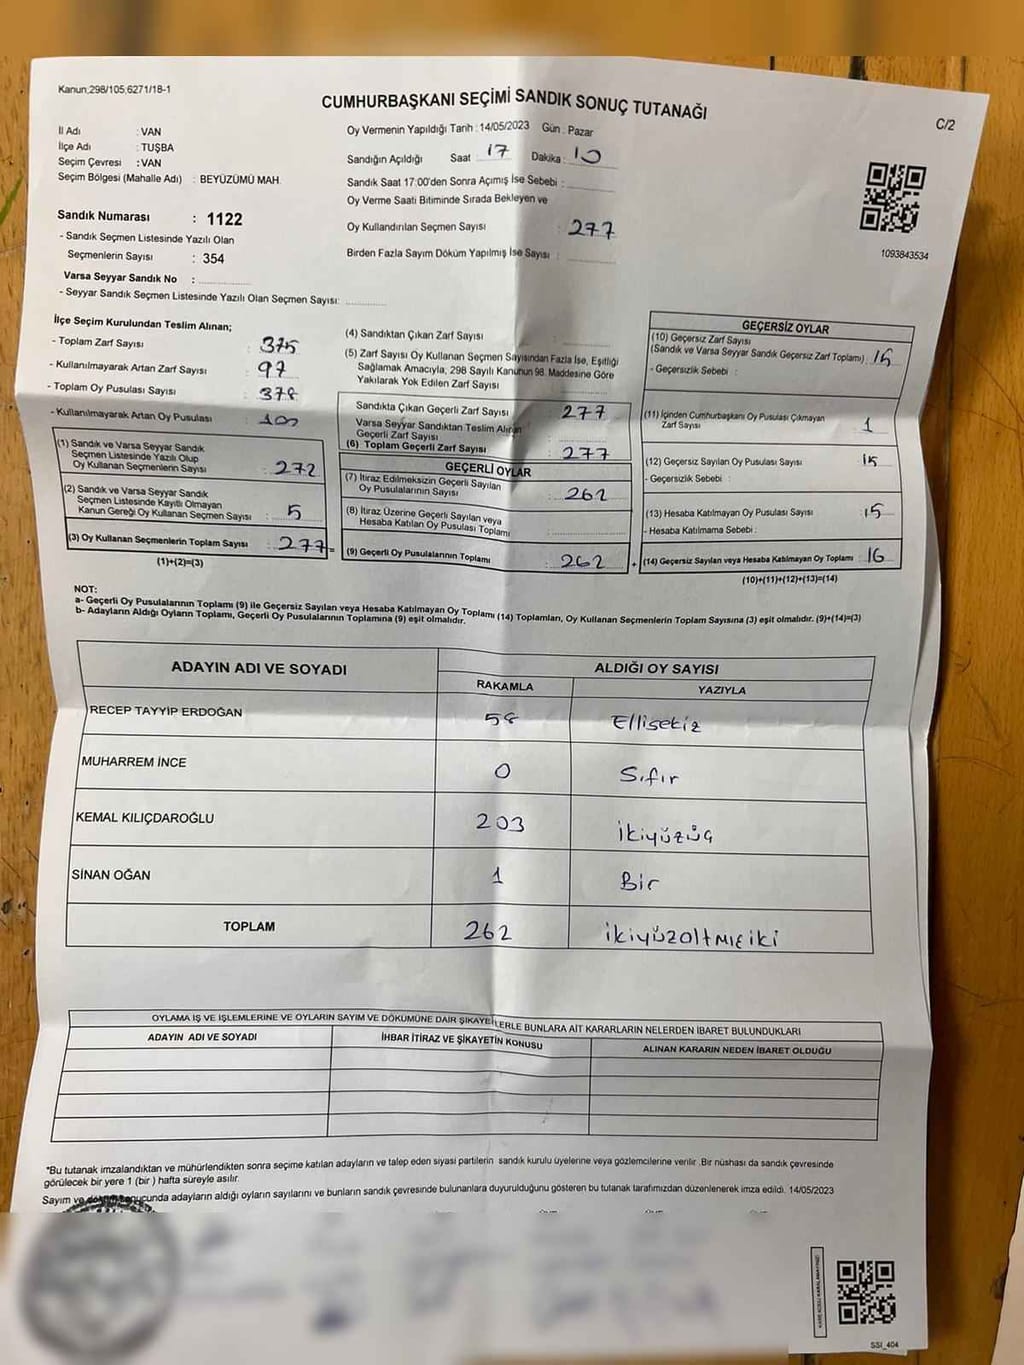 Kanun,298/105,6271/18-1
CUMHURBAŞKANI SEÇİMİ SANDIK SONUÇ TUTANAĞI
C/2
İl Adı : VAN
İlçe Adı : TUŞBA
Seçim Çevresi : VAN
Seçim Bölgesi (Mahalle Adı) : BEYÜZÜMÜ MAH.
Oy Vermenin Yapıldığı Tarih : 14/05/2023 Gün : Pazar
Sandığın Açıldığı Saat 17 Dakika : 10
Sandık Saat 17:00'den Sonra Açımış İse Sebebi :
Oy Verme Saati Bitiminde Sırada Bekleyen ve
Oy Kullandırılan Seçmen Sayısı : 277
Birden Fazla Sayım Döküm Yapılmış İse Sayısı :
1093843534
Sandık Numarası : 1122
- Sandık Seçmen Listesinde Yazılı Olan
Seçmenlerin Sayısı : 354
Varsa Seyyar Sandık No :
- Seyyar Sandık Seçmen Listesinde Yazılı Olan Seçmen Sayısı:
İlçe Seçim Kurulundan Teslim Alınan;
- Toplam Zarf Sayısı : 375
- Kullanılmayarak Artan Zarf Sayısı : 97
- Toplam Oy Pusulası Sayısı : 378
- Kullanılmayarak Artan Oy Pusulası : 100
(1) Sandık ve Varsa Seyyar Sandık
Seçmen Listesinde Yazılı Olup
Oy Kullanan Seçmenlerin Sayısı : 272
(2) Sandık ve Varsa Seyyar Sandık
Seçmen Listesinde Kayıtlı Olmayan
Kanun Gereği Oy Kullanan Seçmen Sayısı : 5
(3) Oy Kullanan Seçmenlerin Toplam Sayısı : 277 =
(1)+(2)=(3)
(4) Sandıktan Çıkan Zarf Sayısı :
(5) Zarf Sayısı Oy Kullanan Seçmen Sayısından Fazla İse, Eşitliği
Sağlamak Amacıyla, 298 Sayılı Kanunun 98. Maddesine Göre
Yakılarak Yok Edilen Zarf Sayısı
Sandıkta Çıkan Geçerli Zarf Sayısı : 277
Varsa Seyyar Sandıktan Teslim Alınan
Geçerli Zarf Sayısı
(6) Toplam Geçerli Zarf Sayısı : 277
GEÇERLİ OYLAR
(7) İtiraz Edilmeksizin Geçerli Sayılan
Oy Pusulalarının Sayısı : 262
(8) İtiraz Üzerine Geçerli Sayılan veya
Hesaba Katılan Oy Pusulası Toplamı :
(9) Geçerli Oy Pusulalarının Toplamı : 262 +
GEÇERSİZ OYLAR
(10) Geçersiz Zarf Sayısı
(Sandık ve Varsa Seyyar Sandık Geçersiz Zarf Toplamı) : 15
- Geçersizlik Sebebi :
(11) İçinden Cumhurbaşkanı Oy Pusulası Çıkmayan
Zarf Sayısı : 1
(12) Geçersiz Sayılan Oy Pusulası Sayısı : 15
- Geçersizlik Sebebi :
(13) Hesaba Katılmayan Oy Pusulası Sayısı : 15
- Hesaba Katılmama Sebebi :
(14) Geçersiz Sayılan veya Hesaba Katılmayan Oy Toplamı : 16
(10)+(11)+(12)+(13)=(14)
NOT:
a- Geçerli Oy Pusulalarının Toplamı (9) ile Geçersiz Sayılan veya Hesaba Katılmayan Oy Toplamı (14) Toplamları, Oy Kullanan Seçmenlerin Toplam Sayısına (3) eşit olmalıdır. (9)+(14)=(3)
b- Adayların Aldığı Oyların Toplamı, Geçerli Oy Pusulalarının Toplamına (9) eşit olmalıdır.
ADAYIN ADI VE SOYADI
ALDIĞI OY SAYISI
RAKAMLA YAZIYLA
RECEP TAYYİP ERDOĞAN 58 Ellisekiz
MUHARREM İNCE 0 Sıfır
KEMAL KILIÇDAROĞLU 203 İkiyüzüç
SİNAN OĞAN 1 Bir
TOPLAM 262 ikiyüzaltmışiki
OYLAMA İŞ VE İŞLEMLERİNE VE OYLARIN SAYIM VE DÖKÜMÜNE DAİR ŞİKAYETLERLE BUNLARA AİT KARARLARIN NELERDEN İBARET BULUNDUKLARI
ADAYIN ADI VE SOYADI İHBAR İTİRAZ VE ŞİKAYETİN KONUSU ALINAN KARARIN NEDEN İBARET OLDUĞU
*Bu tutanak imzalandıktan ve mühürlendikten sonra seçime katılan adayların ve talep eden siyasi partilerin sandık kurulu üyelerine veya gözlemcilerine verilir .Bir nüshası da sandık çevresinde
görülecek bir yere 1 (bir ) hafta süreyle asılır.
Sayım ve döküm sonucunda adayların aldığı oyların sayılarını ve bunların sandık çevresinde bulunanlara duyurulduğunu gösteren bu tutanak tarafımızdan düzenlenerek imza edildi. 14/05/2023
SSI_404